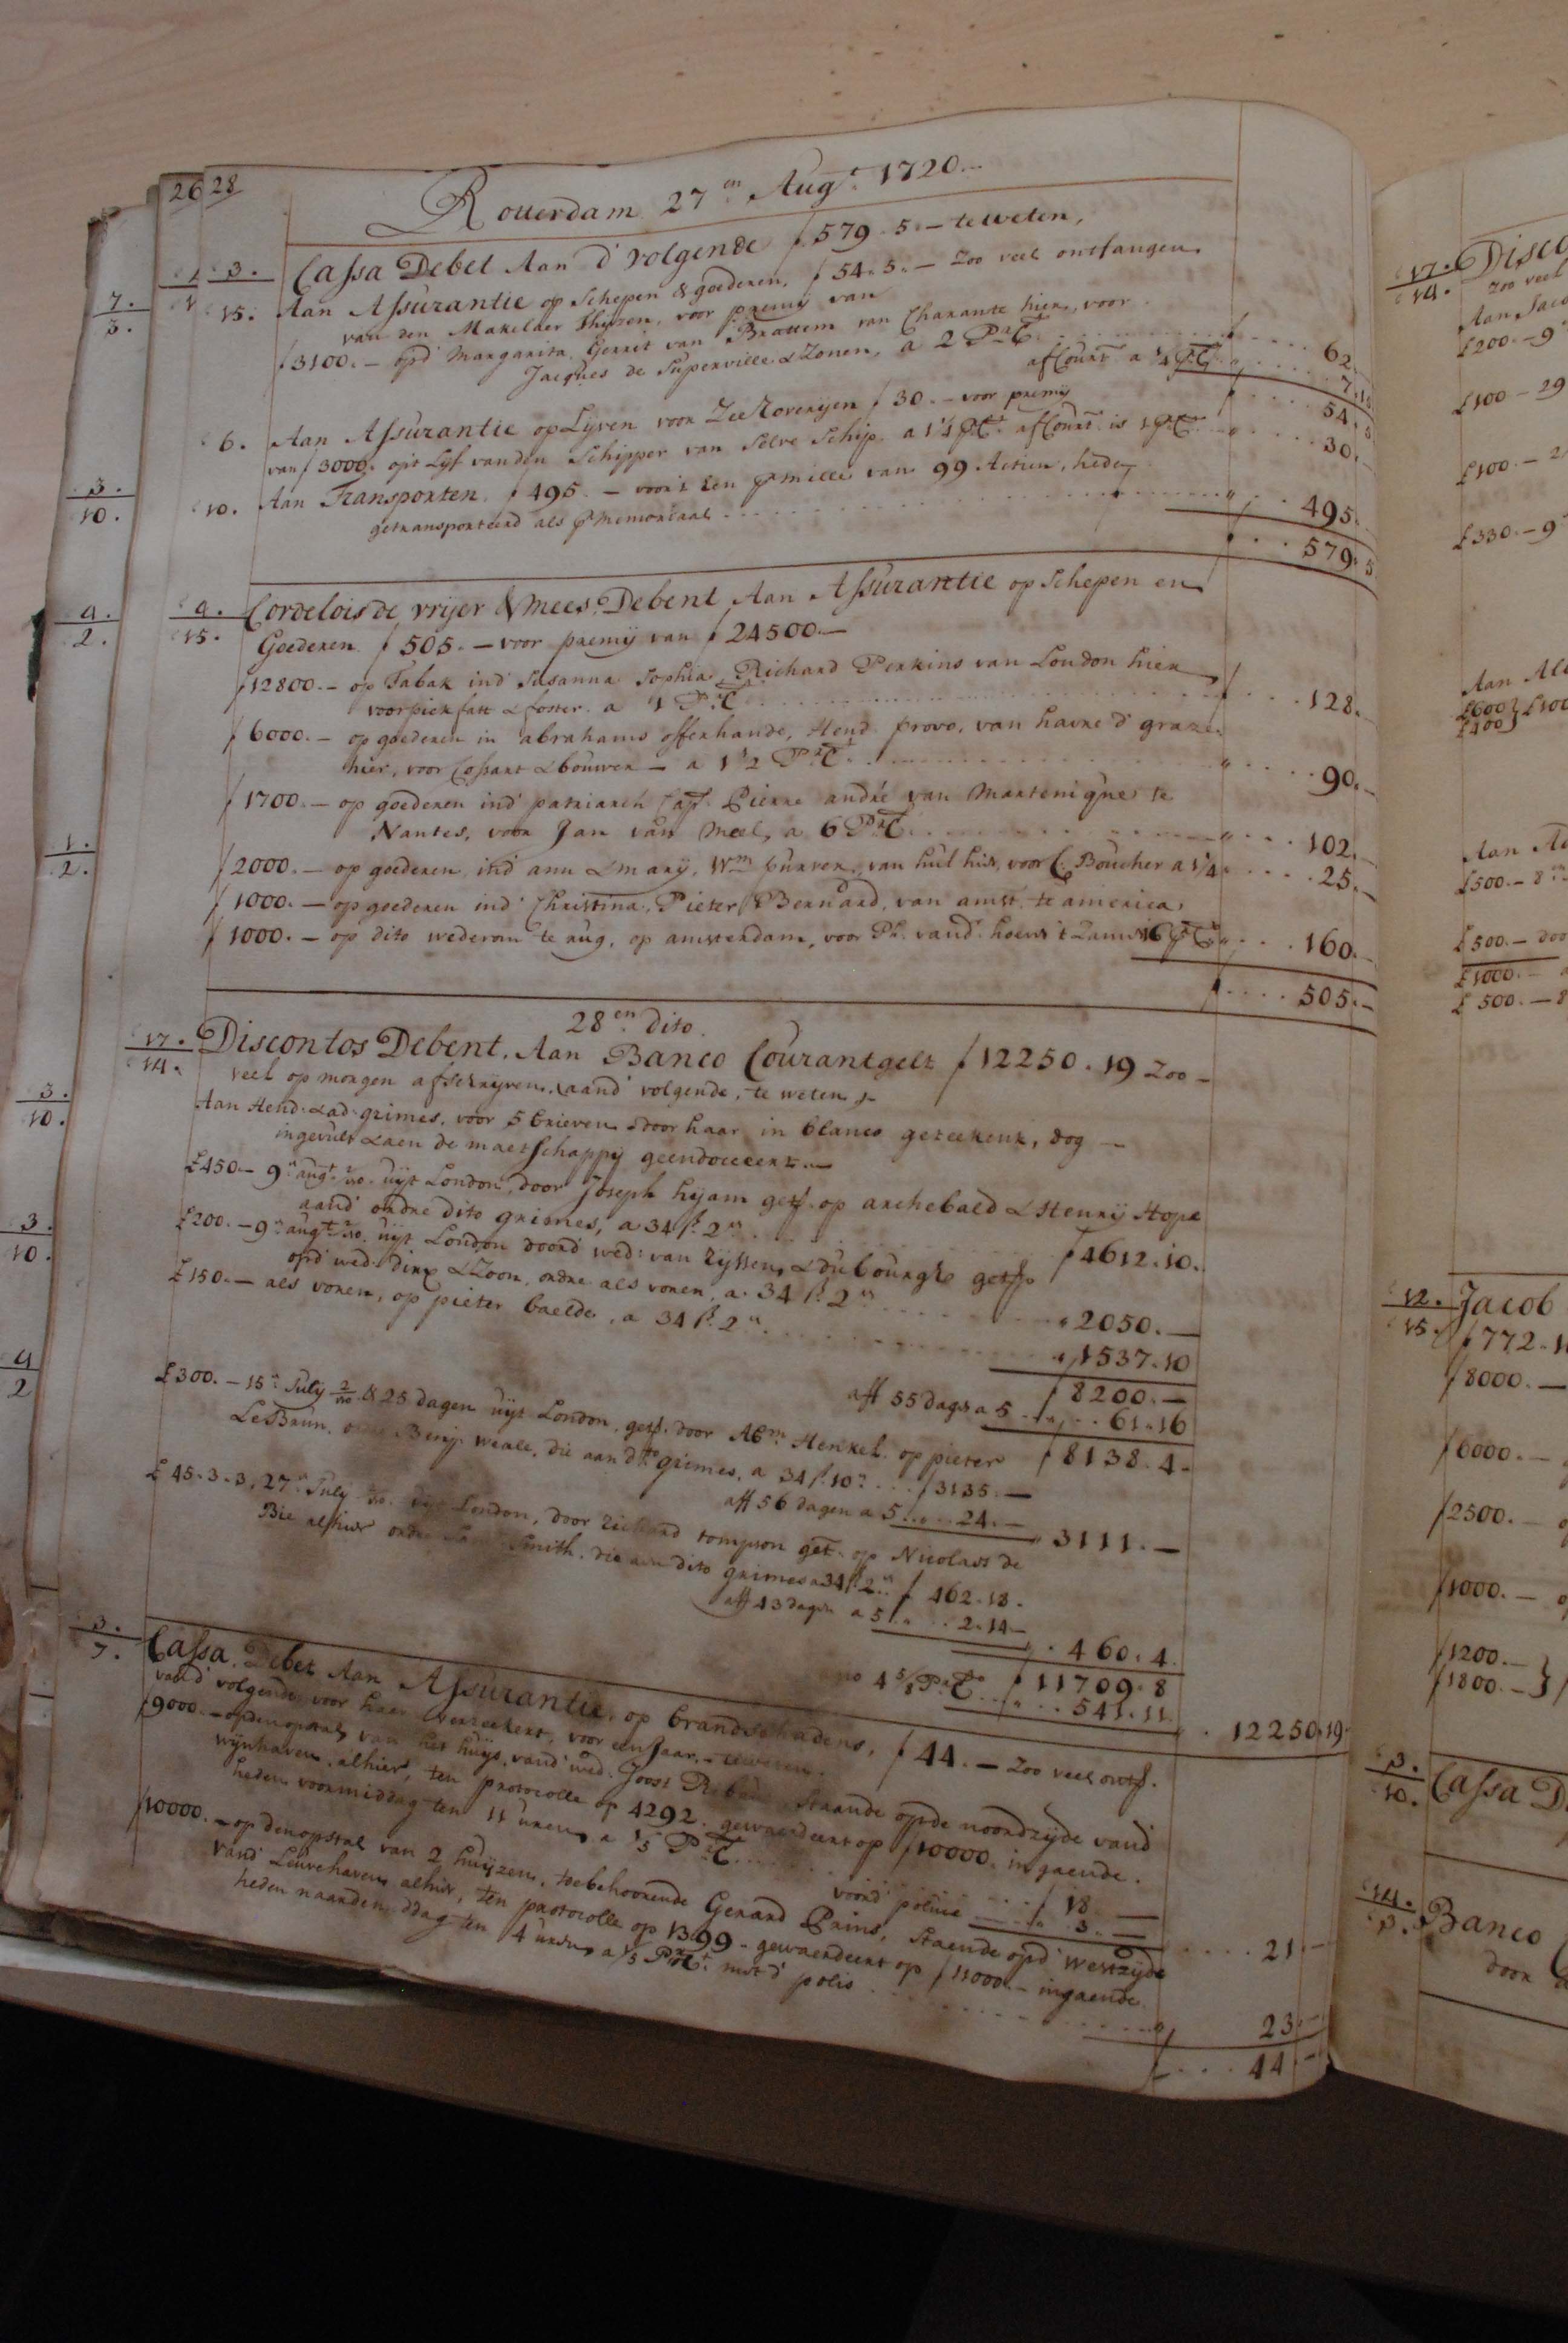 26 28
Rotterdam 27en Augt 1720.
3. Cassa Debet Aan d' volgende ƒ 579.5.— te weten,
15. Aan Assurantie op Schepen & goederen, ƒ 54.5.— Zoo veel ontfangen
van den Makelaer Thijsen, voor premij van
ƒ 3100.— opd' Margarita, Gerrit van Brattem van Charante hier, voor
Jacques de Superville & Zonen, a 2 PrCt ƒ 62.
af Court. a 1/4 PrCt 7.15
ƒ 54.5
6. Aan Assurantie op Lijven voor Zee Roverijen ƒ 30.— voor premij
van ƒ 3000. opt Lijf van den Schipper van Selve Schip. a 1 1/4 PCt af Court. is 1 PCt 30.—
10. Aan Transporten. ƒ 495.— voor 't een P mille van 99 Actien, heden
getransporteerd als P memoriaal 495.
ƒ 579.5
4.
15. Cordelois de vrijer & Mees. Debent Aan Assurantie op Schepen en
Goederen ƒ 505.— voor premij van ƒ 24500.—
ƒ 12800.— op Tabak ind' Susanna Sophia, Richard Perkins van London hier
voor & foster. a 1 PrCt ƒ 128.—
ƒ 6000.— op goederen in abrahams offerhande, Hend. provo, van havre d' graze
hier, voor Cossart & bouwer — a 1 1/2 PrCt 90.—
ƒ 1700.— op goederen ind' patriarch Capt. Pierre andré van Martenique te
Nantes, voor Jan van Meel, a 6 PrCt 102.—
ƒ 2000.— op goederen, ind' ann & mary, Wm van hul hier, voor C. Boucher a 1 1/4 25.—
ƒ 1000.— op goederen ind' Christina, Pieter Bernard, van amst. te america,
ƒ 1000.— op dito wederom te rug, op amsterdam, voor Ph. vand. hoeve t Zam. 16 PCt 160.—
ƒ 505.—
28en dito.
17.
14. Discontos Debent. Aan Banco Courantgelt ƒ 12250.19 Zoo —
veel op morgen afschrijven, aand' volgende, te weten,
Aan Hend. & ad. grimes, voor 5 brieven door haar in blanco geteekent, dog —
ingevult & aen de maetschappij geendoceert.—
£450.— 9n augt 2/m. uyt London, door Joseph hijam getr. op archebald & Henrij Hope
aand' ordre dito grimes, a 34 ß. 2n ƒ 4612.10.
£200.— 9n augt 2/m. uyt London doord' wed: van Zijssen & dubourgh getr.
opd' wed. dirx & Zoon, ordre als voren, a. 34 ß. 2n 2050.—
£150.— als voren, op pieter baelde, a 34 ß. 2n. 1537.10
ƒ 8200.—
aff 55 dagen a 5 61.16
ƒ 8138.4.
£300.— 15n July 2/m & 25 dagen uyt London, getr. door Abm. Henkel. op pieter
LeBrun, ordre Benij. weale, die aan dto grimes, a 34 ß. 10n. ƒ 3135.—
aff 56 dagen a 5 24.— 3111.—
£ 45.3.3, 27n July uyt London, door Richard tompson get. op Nicolaas de
Bie alhier ordre Sam. Smith, die aan dito grimes a 34 ß 2n ƒ 462.18.
aff 43 dagen a 5 2.14— 460.4.
ƒ 11709.8
4 5/8 PrCto 541.11.
12250.19
3.
7. Cassa. Debet Aan Assurantie, op brandschadens, ƒ 44.— Zoo veel ontf.
vand' volgende, voor haar verzeekert, voor een Jaar, te weten.
ƒ 9000.— op den opstal van het huijs vand' wed. Joost staande opde noordzijde vand'
wijnhaven, alhier, ten protocolle op 4292. gewaerdeert op ƒ 10000. ingaende.
heden voormiddag ten 11 uren, a 1/5 PrCt ƒ 18.—
voord' police 3.—
21.—
ƒ 10000.— op den opstal van 2 huijzen, toebehoorende Gerard Prins, staende opd' westzijde
vand' Leuvehaven alhier, ten protocolle op 1399 – gewaerdeert op ƒ 11000.— ingaende
heden naarden ddag ten 4 uren, a 1/5 PrCt. met d' polis 23.—
ƒ 44.—
7.
3.
3.
10.
4.
2.
1.
2.
3.
10.
3.
10.
4
2
17.
14.
Aan
£200.—9
£100—29
£100.—2
£330.—9
£600
£400
£500.—8
£500.— doo
£1000.—
£500.—8
12.
15. Jacob
ƒ 772.1
ƒ 8000.—
ƒ 6000.—
ƒ 2500.—
ƒ 1000.—
ƒ 1200.—
ƒ 1800.—
3.
10. Cassa D
14.
3. Banco
door